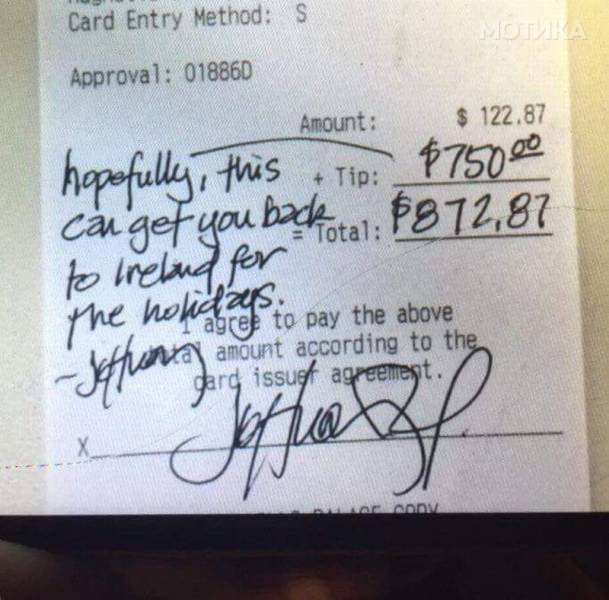 Card Entry Method: S
МОТИКА
Approval: 01886D
Amount: $ 122.87
+ Tip: $750.00
= Total: $872.87
hopefully, this
can get you back
to Ireland for
the holidays.
I agree to pay the above
total amount according to the
card issuer agreement.
X
COPY